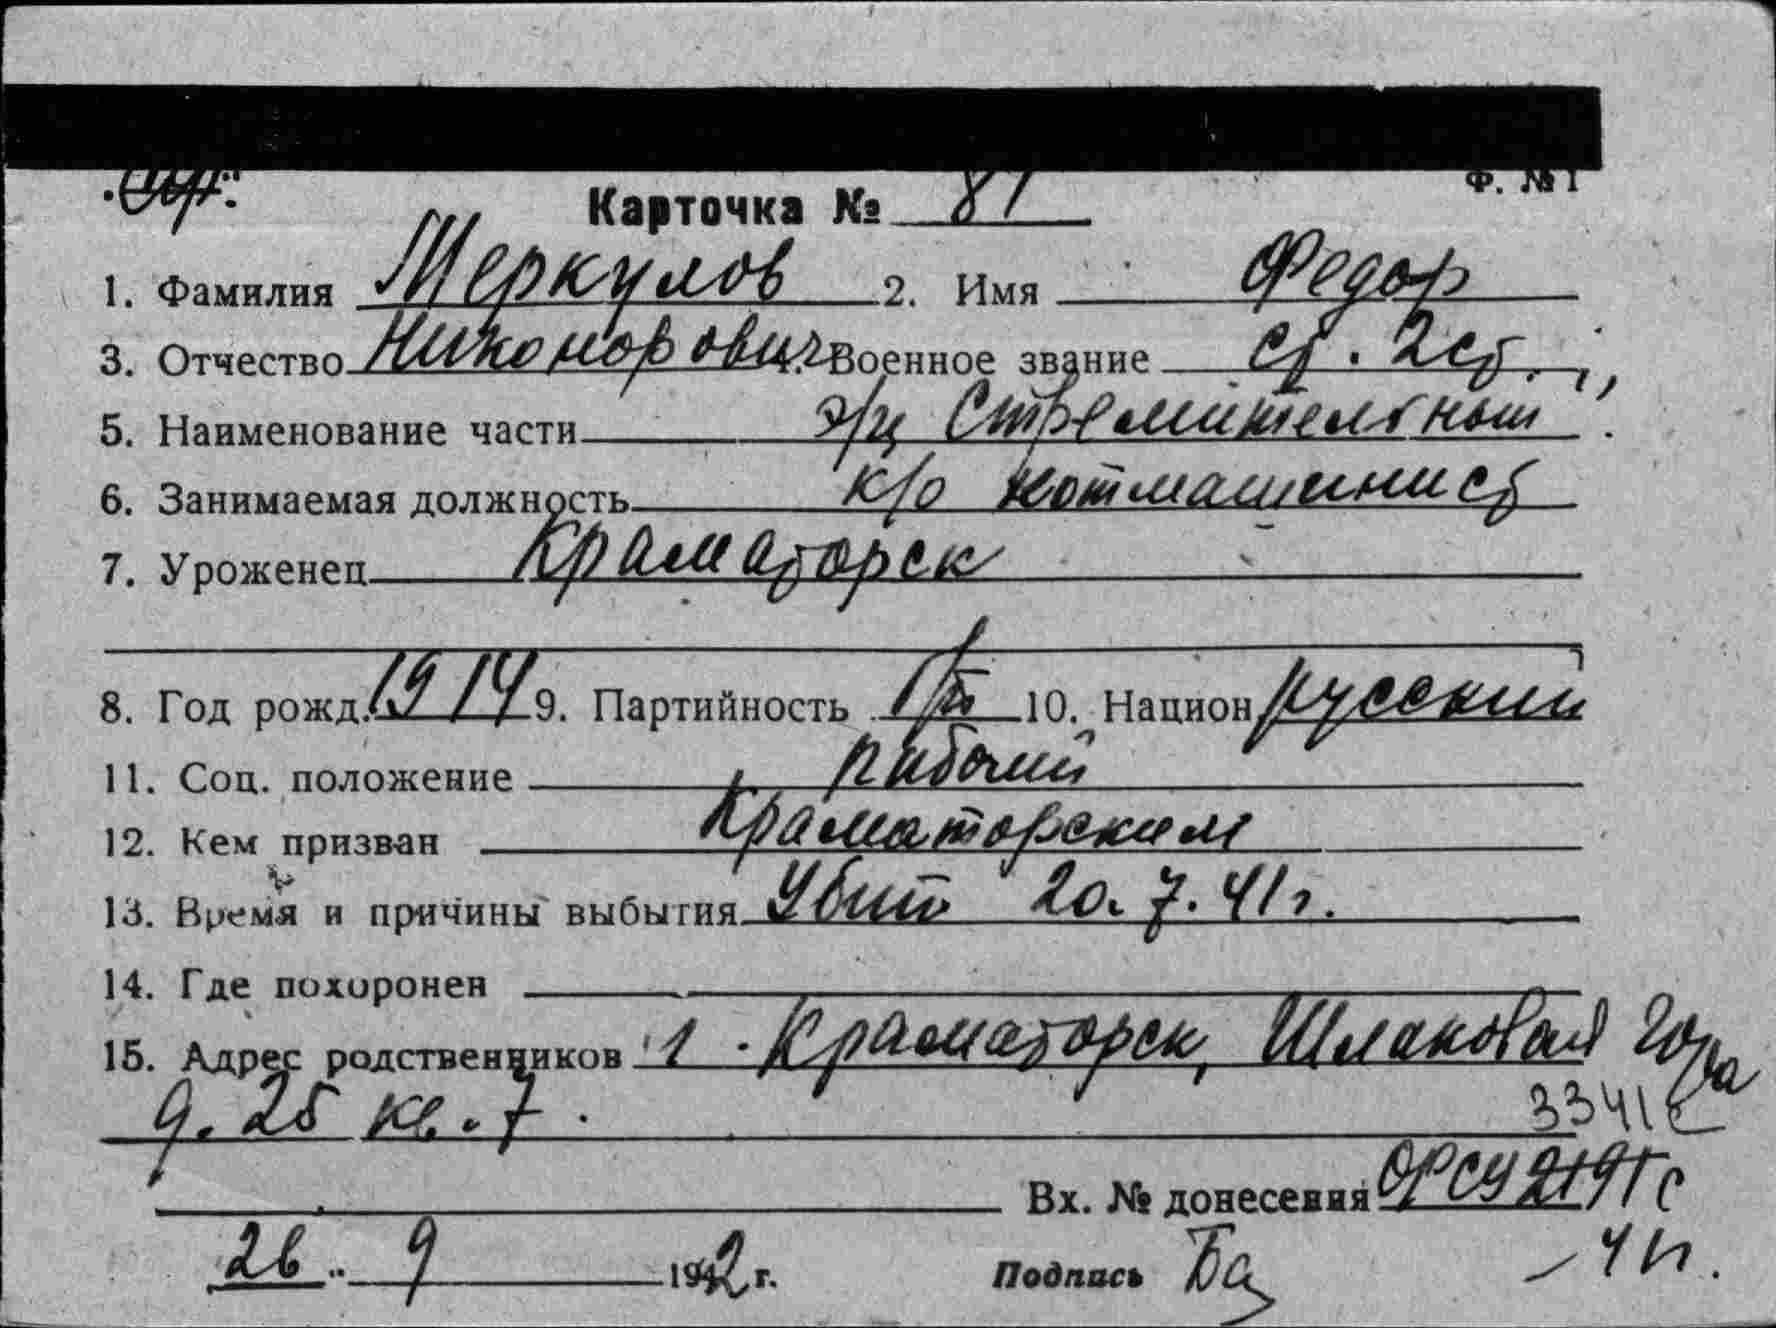 Ф. № 1
Карточка № 81
1. Фамилия Меркулов 2. Имя Федор
3. Отчество Никонорович Военное звание ст. 2 ст.
5. Наименование части э/м Стремительный
6. Занимаемая должность к/о котмашинист
7. Уроженец Краматорск
8. Год рожд. 1914 9. Партийность б/п 10. Национ русский
11. Соц. положение рабочий
12. Кем призван Краматорским
13. Время и причины выбытия Убит 20.7.41г.
14. Где похоронен
15. Адрес родственников г. Краматорск, Шлаковая гора
д. 25 кв. 7.
Вх. № донесения ОРСУ
26 9 1942 г. Подпись